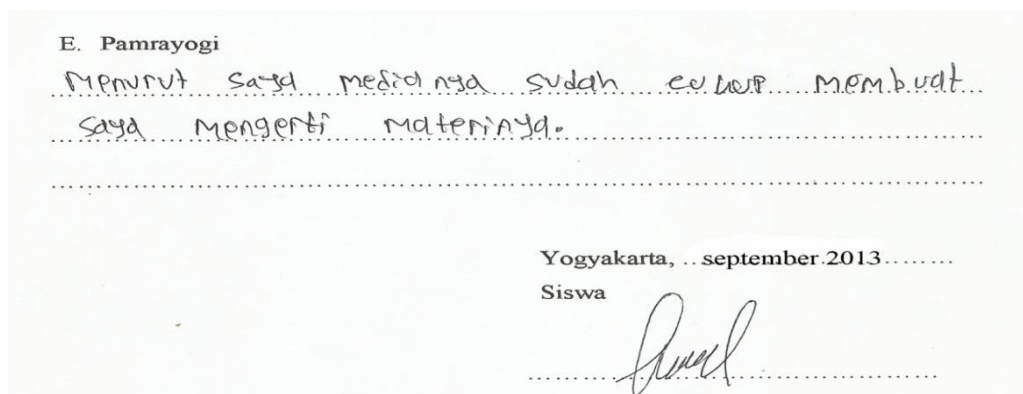 E. Pamrayogi
Menurut saya medianya sudah cukup membuat
saya mengerti materinya.
Yogyakarta, .. september.2013........
Siswa